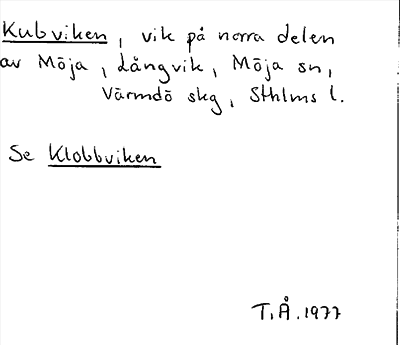 Kubviken, vik på norra delen
av Möja, Långvik, Möja sn,
Värmdö skg, Sthlms l.
Se Klobbviken
T.Å. 1977